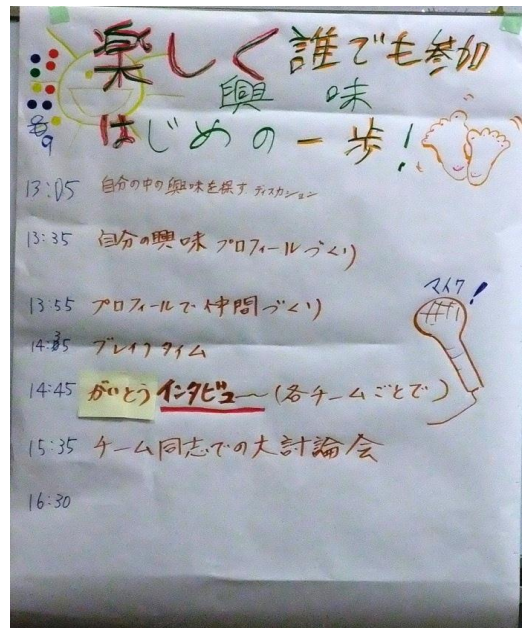 楽しく誰でも参加
興味
はじめの一歩!
9
13:05 自分の中の興味を探す ディスカション
13:35 自分の興味 プロフィールづくり
13:55 プロフィールで仲間づくり
14:35 ブレイクタイム
マイク!
14:45 がいとう インタビュー (各チームごとで)
15:35 チーム同志での大討論会
16:30